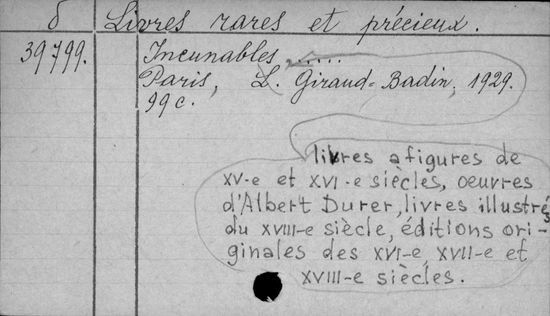 δ Livres rares et précieux.
39799. Incunables ......
Paris, L. Giraud-Badin, 1929.
99 c.
livres a figures de
XV-e et XVI-e siècles, oeuvres
d'Albert Durer, livres illustrés
du XVIII-e siècle, éditions ori-
ginales des XVI-e, XVII-e et
XVIII-e siècles.